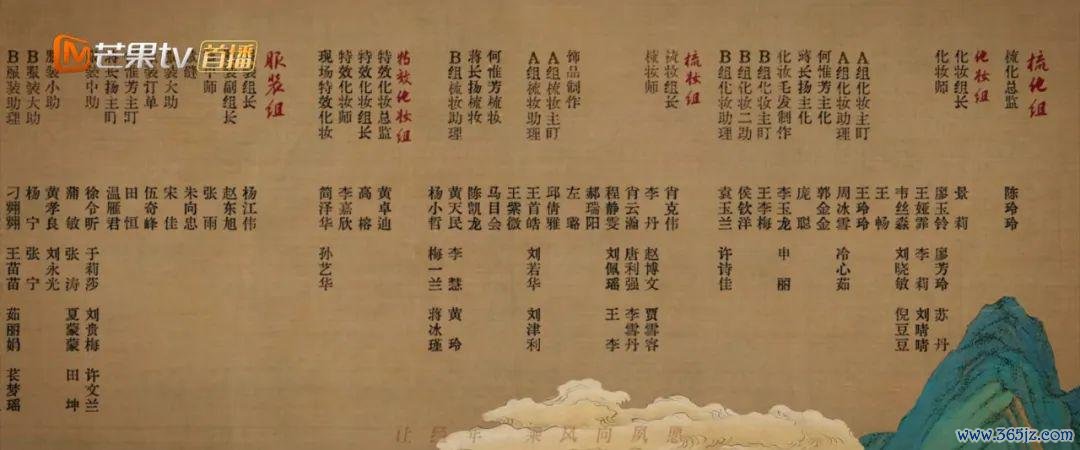 芒果tv 首播
梳化组
梳化总监 陈玲玲
化妆组
化妆组长 景莉
化妆师 廖玉铃 廖芳玲 苏丹
王娅霏 李莉 刘晴晴
韦丝淼 刘晓敏 倪豆豆
王畅
A组化妆主盯 王玲玲
A组化妆助理 周冰雪 冷心茹
何惟芳主化 郭金金
蒋长扬主化 庞聪
化妆毛发制作 李玉龙 申丽
B组化妆主盯 王李梅
B组化妆二助 侯钦洋
B组化妆助理 袁玉兰 许诗佳
梳妆组
梳妆组长 肖克伟
梳妆师 李丹 赵博文 贾雪容
肖云瀚 唐利强 李雪丹
程静雯 刘佩瑶 王李
郝瑞阳
饰品制作 左璐
A组梳妆主盯 邱倩雅
A组梳妆助理 王首皓 刘若华 刘津利
王紫薇
何惟芳梳妆 马目会
蒋长扬梳妆 陈凯龙
B组梳妆助理 黄天民 李慧 黄玲
杨小哲 梅一兰 蒋冰瑾
特效化妆组
特效化妆总监 黄卓迪
特效化妆组长 高榕
特效化妆师 李嘉欣
现场特效化妆 简泽华 孙艺华
服装组
装组长 杨江伟
装副组长 赵东旭
师 张雨
缝 朱向忠
装大助 宋佳
装订单 伍奇峰
惟芳主盯 田恒
长扬主盯 温雁君
装中助 徐令听 于莉莎 刘贵梅 许文兰
蒲敏 张涛 夏蒙蒙 田坤
服装小助 黄孝良 刘永光
B服装大助 杨宁 张宁
B服装助理 王苗苗 茹丽娟 苌梦瑶
让经年 乘风问夙愿
www.365jz.com